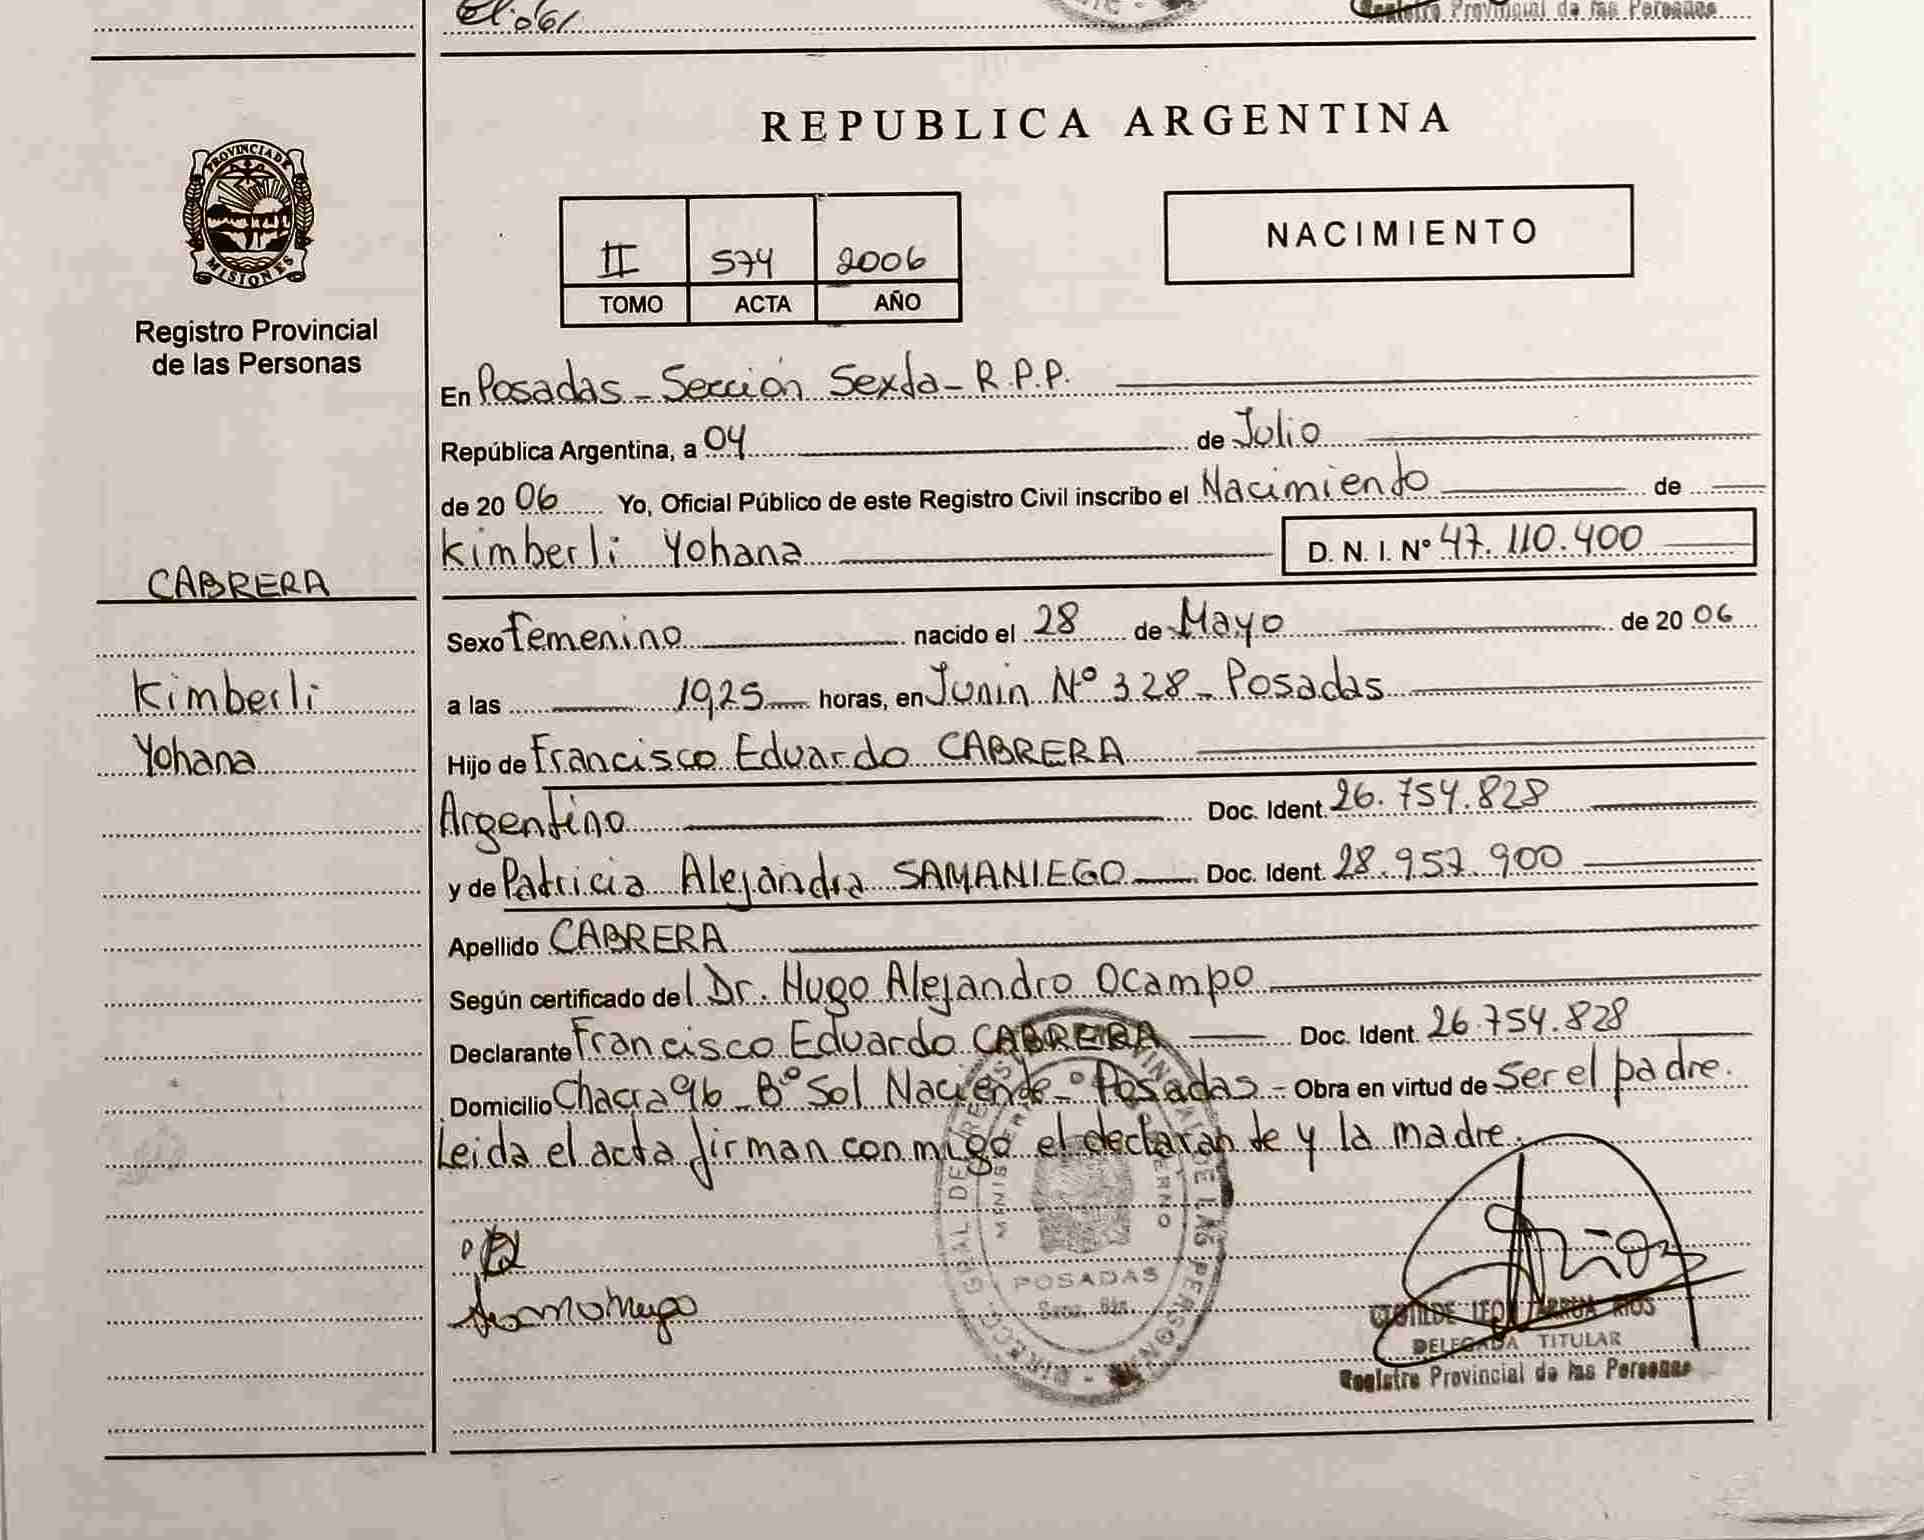 Registro Provincial de las Personas
REPUBLICA ARGENTINA
PROVINCIA DE
MISIONES
Registro Provincial
de las Personas
II 574 2006
TOMO ACTA AÑO
NACIMIENTO
En Posadas - Sección Sexta - R.P.P.
República Argentina, a 04 de Julio
de 20 06 Yo, Oficial Público de este Registro Civil inscribo el Nacimiento de
Kimberli Yohana D. N. I. Nº 47.110.400
CABRERA
Kimberli
Yohana
Sexo femenino nacido el 28 de Mayo de 20 06
a las 19,25 horas, en Junin Nº 328 - Posadas
Hijo de Francisco Eduardo CABRERA
Argentino Doc. Ident. 26.754.828
y de Patricia Alejandra SAMANIEGO Doc. Ident. 28.957.900
Apellido CABRERA
Según certificado del Dr. Hugo Alejandro Ocampo
Declarante Francisco Eduardo CABRERA Doc. Ident. 26.754.828
Domicilio Chacra 96 - Bº Sol Naciende - Posadas - Obra en virtud de Ser el padre.
Leida el acta firman conmigo el declarante y la madre.
POSADAS
RIOS
DELEGADA TITULAR
Registro Provincial de las Personas